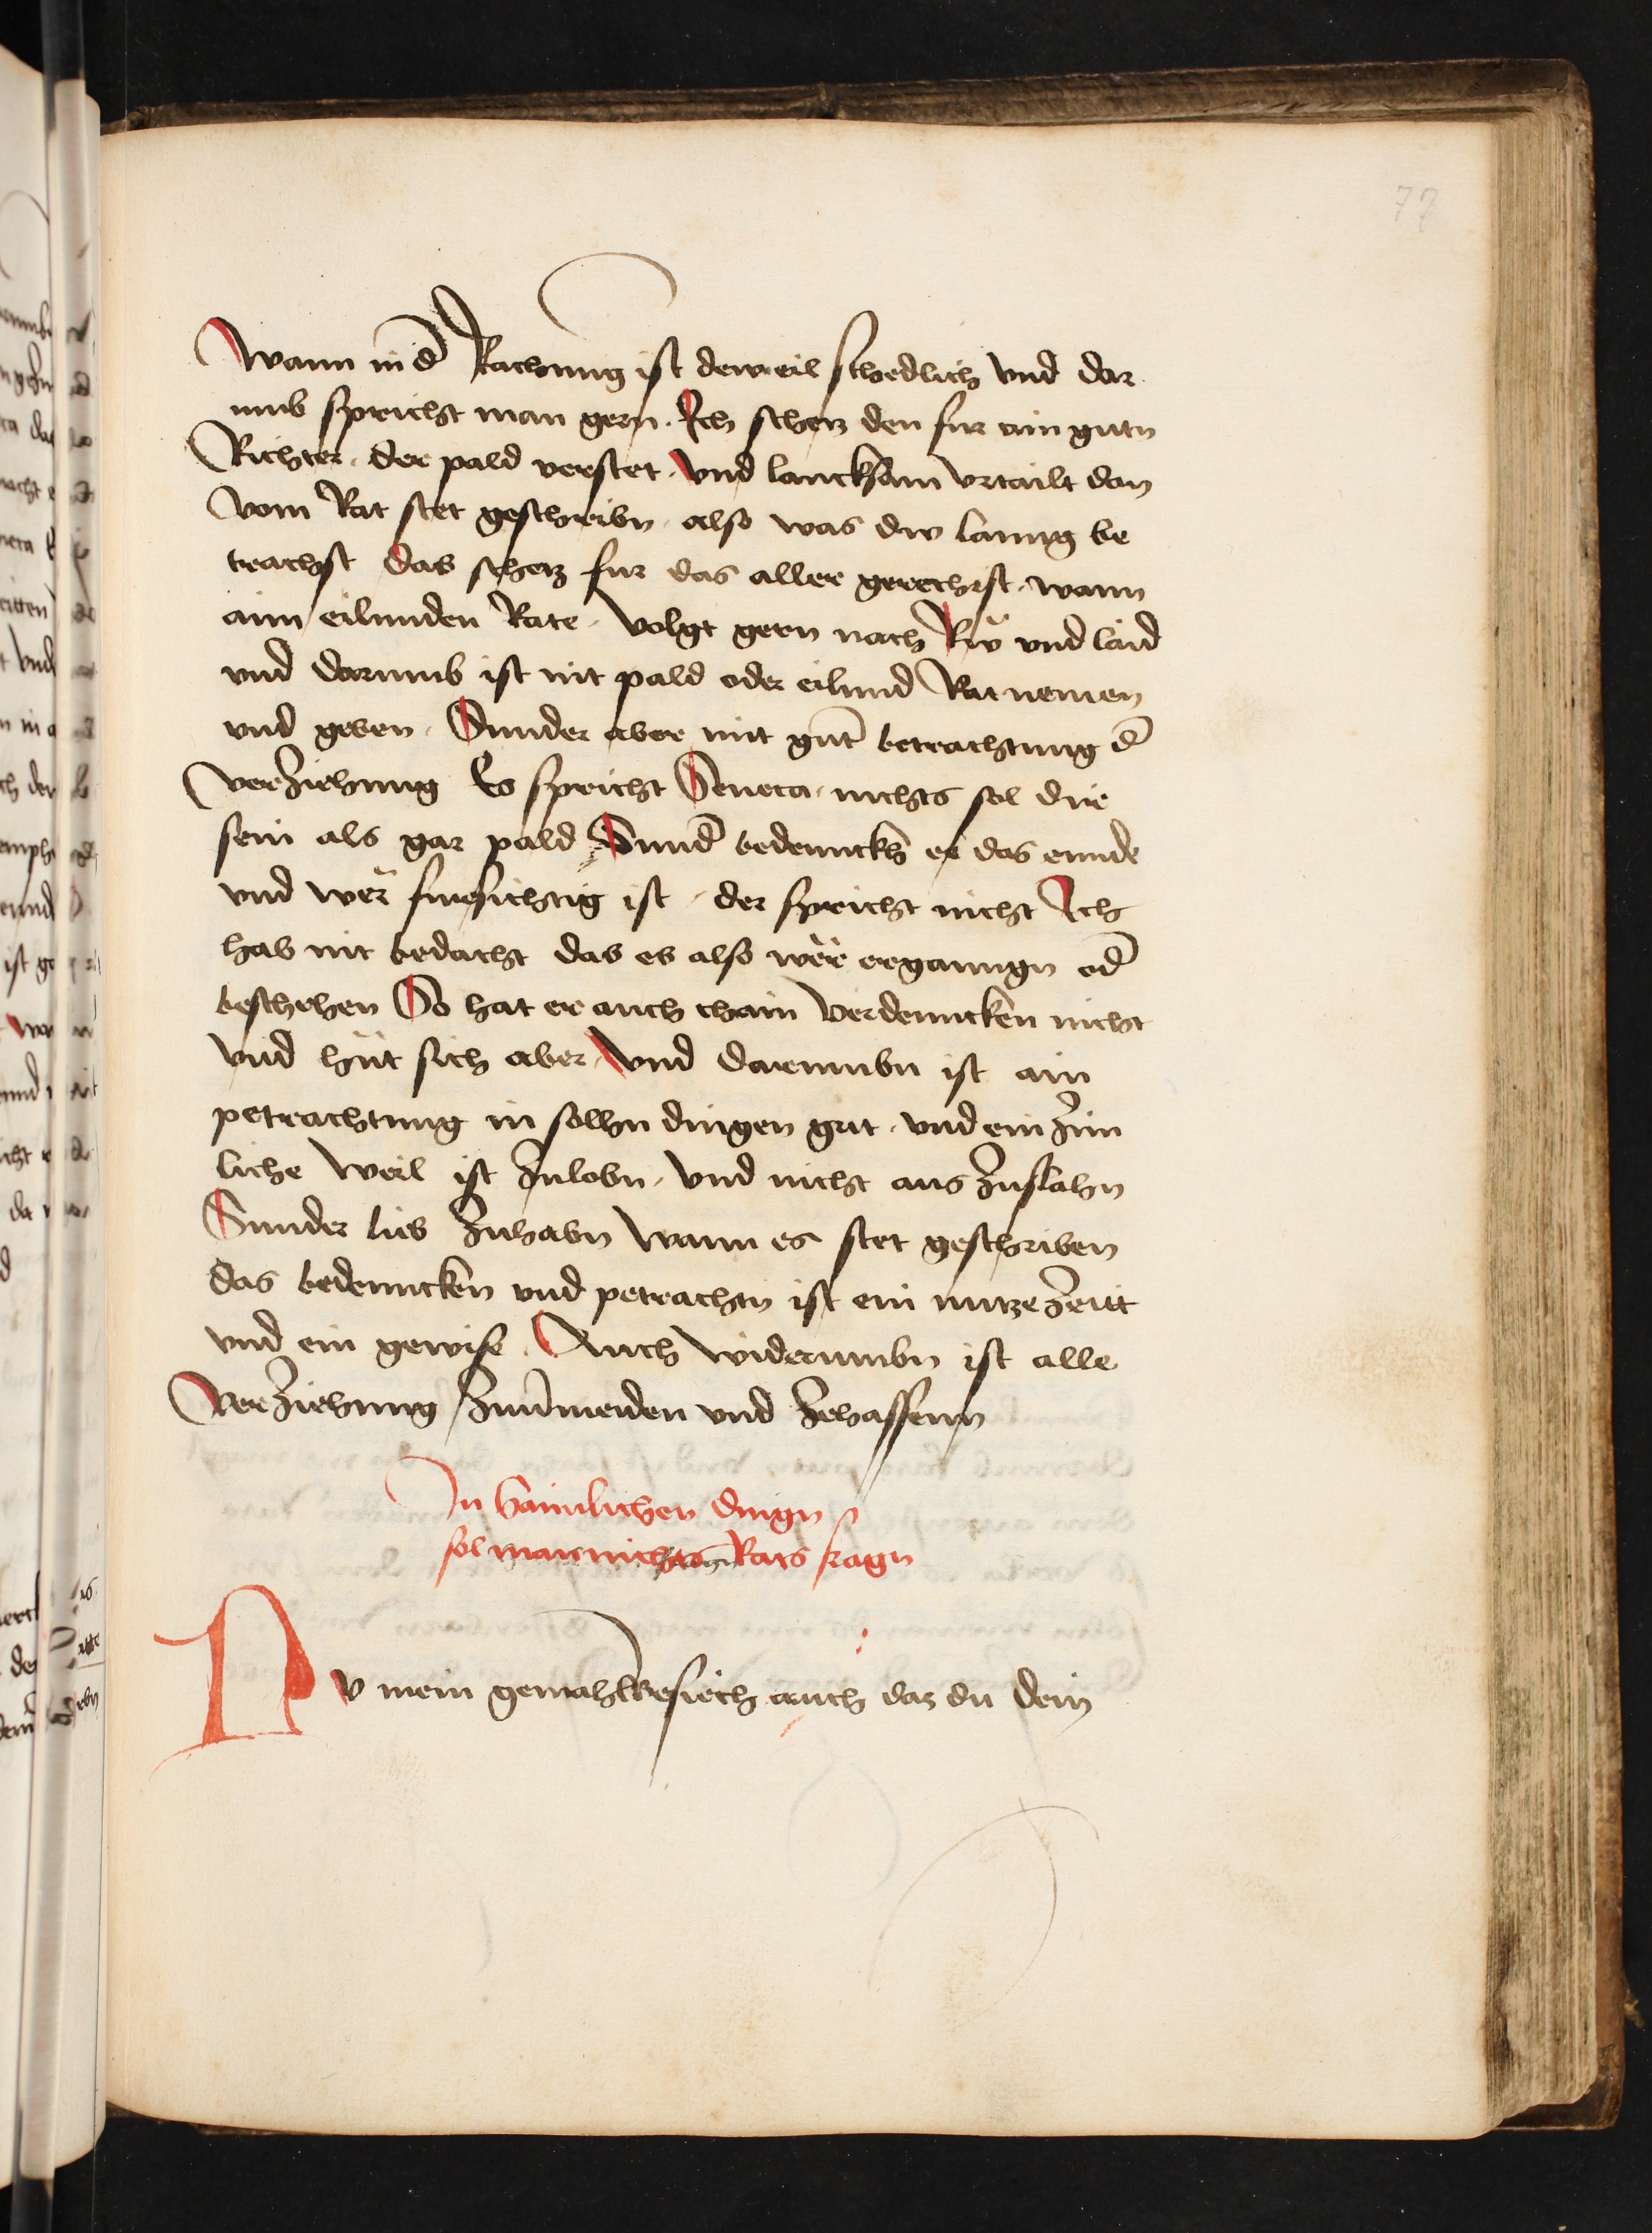 77
Wann in d̄ Rachung ist deweil schedlich Vnd dar
umb spricht man gern. Ich schetz den fur ain gutn
Richter. der pald verstet. Vnd lancksam vrtailt dan
vom Rat stet geschreibn. also was dw lanng be
trachst das schetz fur das aller gerechist. wann
aim eilunden Rate. Volgt gern nach Rw̌ vnd laid
vnd darumb ist nit pald oder eilund Rat nemen
vnd geben. Sunder aber mit gut̄ betrachtung d̄
verziehung Es spricht Seneca. nichts sol dir
sein als gar pald Sund̄ bedennckh er das ennde
vnd wer fursichtig ist. der spricht nicht Ich
hab nit bedacht das es also wër erganngn od̄
beschehen So hat er auch chain Verdenncken nicht
vnd hüt sich aber. Vnd darumbn ist ain
petrachtung in solhn dingen gut. vnd ein zim
liche weil ist zulobn. vnd nicht aus zuslahn
Sunder lieb zuhabn wann es stet geschriben
das bedenncken vnd petrachtn ist ein nutze zeitt
vnd ein gewise. Auch widerumbn ist alle
Verziehung zuu̅meiden vnd zehassenn
In haimlichen dingn
sol man nichts Rats fragn
Nv mein gemahl besiech auch daz du dein